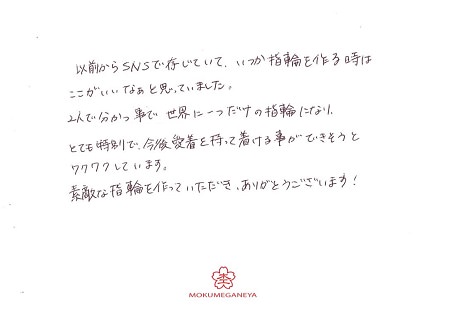 以前からSNSで存じていて、いつか指輪を作る時は
ここがいいなぁと思っていました。
2人で分かつ事で世界に一つだけの指輪になり、
とても特別で、今後愛着を持って着ける事ができそうと
ワクワクしています。
素敵な指輪を作っていただき、ありがとうございます!
MOKUMEGANEYA